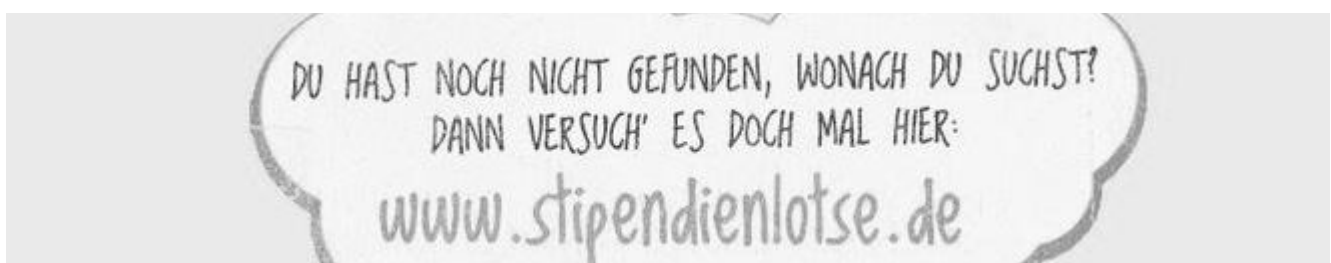 DU HAST NOCH NICHT GEFUNDEN, WONACH DU SUCHST?
DANN VERSUCH' ES DOCH MAL HIER:
www.stipendienlotse.de